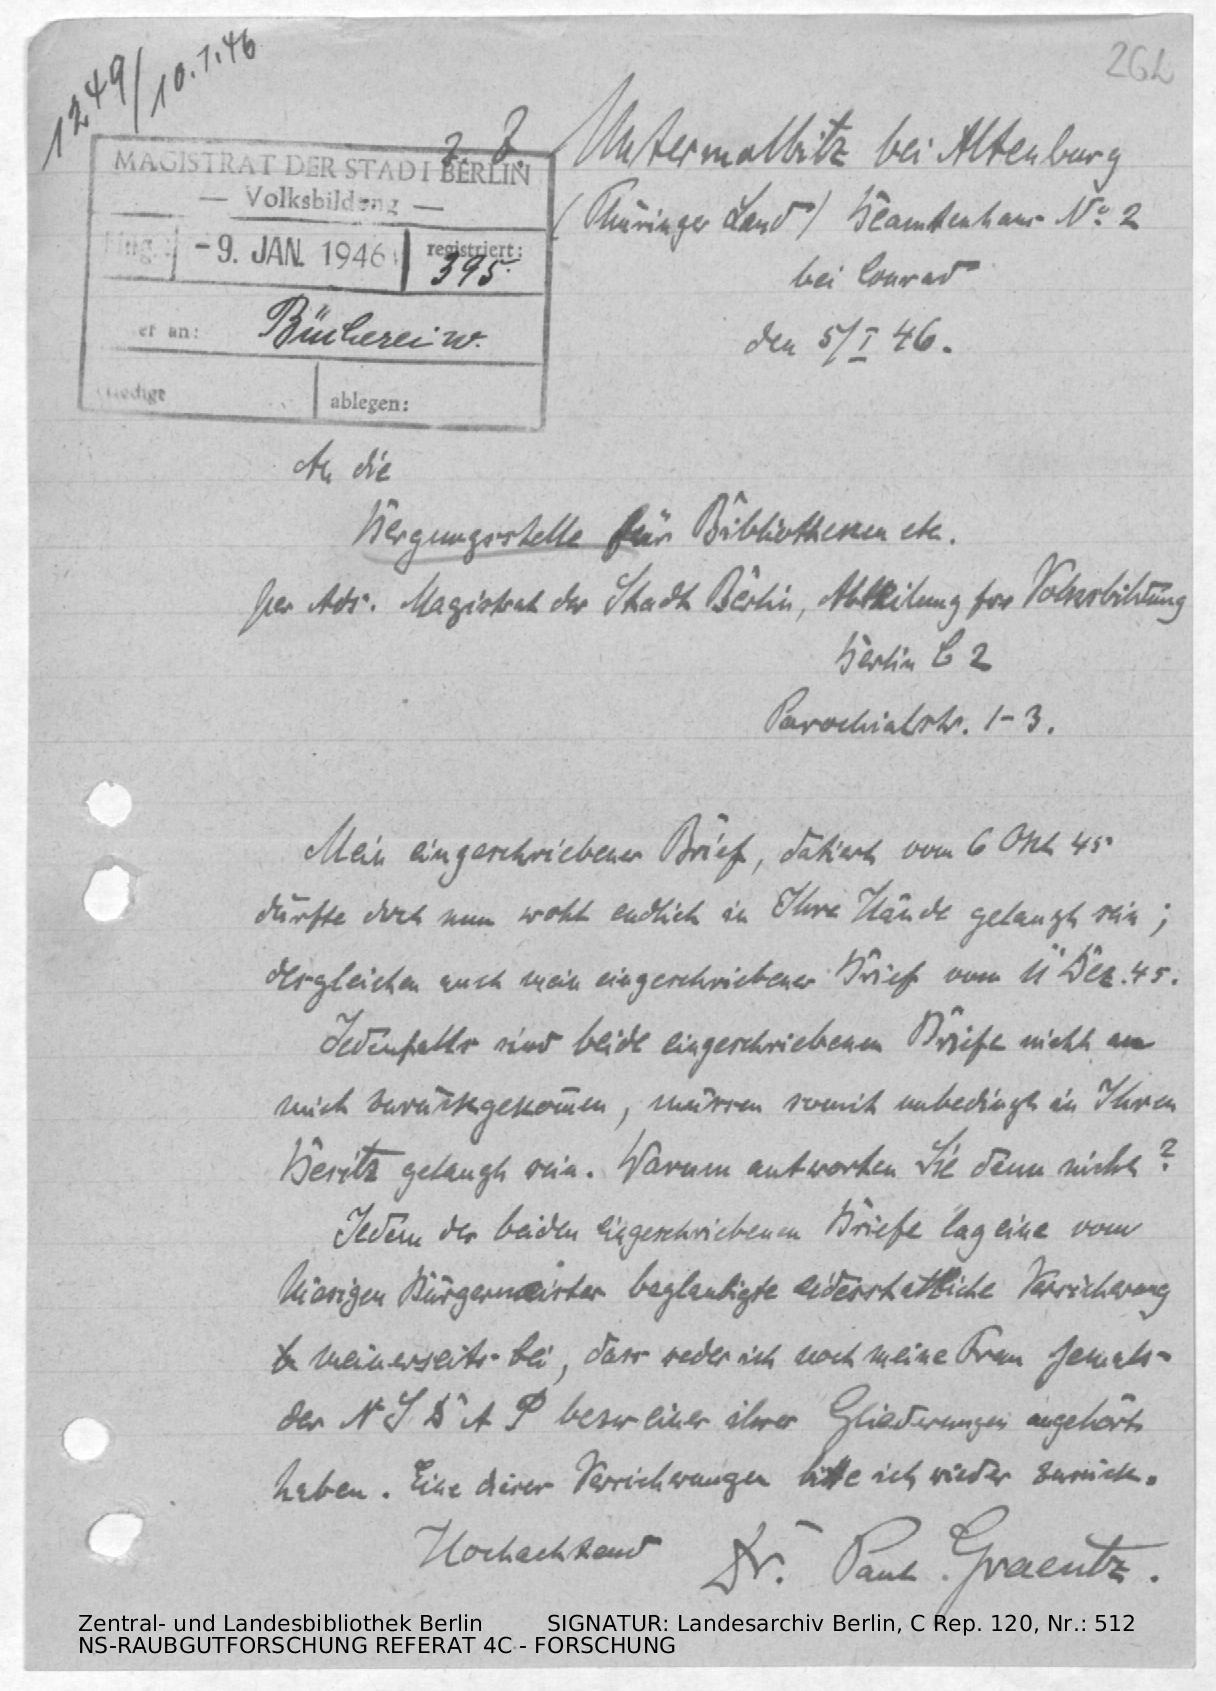 1249/10.1.46
262
z. Z. Untermolbitz bei Altenburg
(Thüringer Land) Beamtenhaus No 2
bei Conrad
den 5/I 46.
MAGISTRAT DER STADT BERLIN
— Volksbildung —
Eing.: -9. JAN. 1946 registriert: 395.
er an: Büchereiw.
ledigt ablegen:
An die
Bergungsstelle für Bibliotheken etc.
per Adr. Magistrat der Stadt Berlin, Abteilung für Volksbildung
Berlin C 2
Parochialstr. 1-3.
Mein eingeschriebener Brief, datiert vom 6 Okt 45
dürfte doch nun wohl endlich in Ihre Hände gelangt sein;
desgleichen auch mein eingeschriebener Brief vom 11 Dez. 45.
Jedenfalls sind beide eingeschriebenen Briefe nicht an
mich zurückgekommen, müssen somit unbedingt in Ihren
Besitz gelangt sein. Warum antworten Sie denn nicht?
Jedem der beiden eingeschriebenen Briefe lag eine vom
hiesigen Bürgermeister beglaubigte eidesstattliche Versicherung
meinerseits bei, dass weder ich noch meine Frau jemals
der N S D A P bezw einer ihrer Gliederungen angehört
haben. Eine dieser Versicherungen bitte ich wieder zurück.
Hochachtend Dr. Paul Graentz.
Zentral- und Landesbibliothek Berlin SIGNATUR: Landesarchiv Berlin, C Rep. 120, Nr.: 512
NS-RAUBGUTFORSCHUNG REFERAT 4C - FORSCHUNG